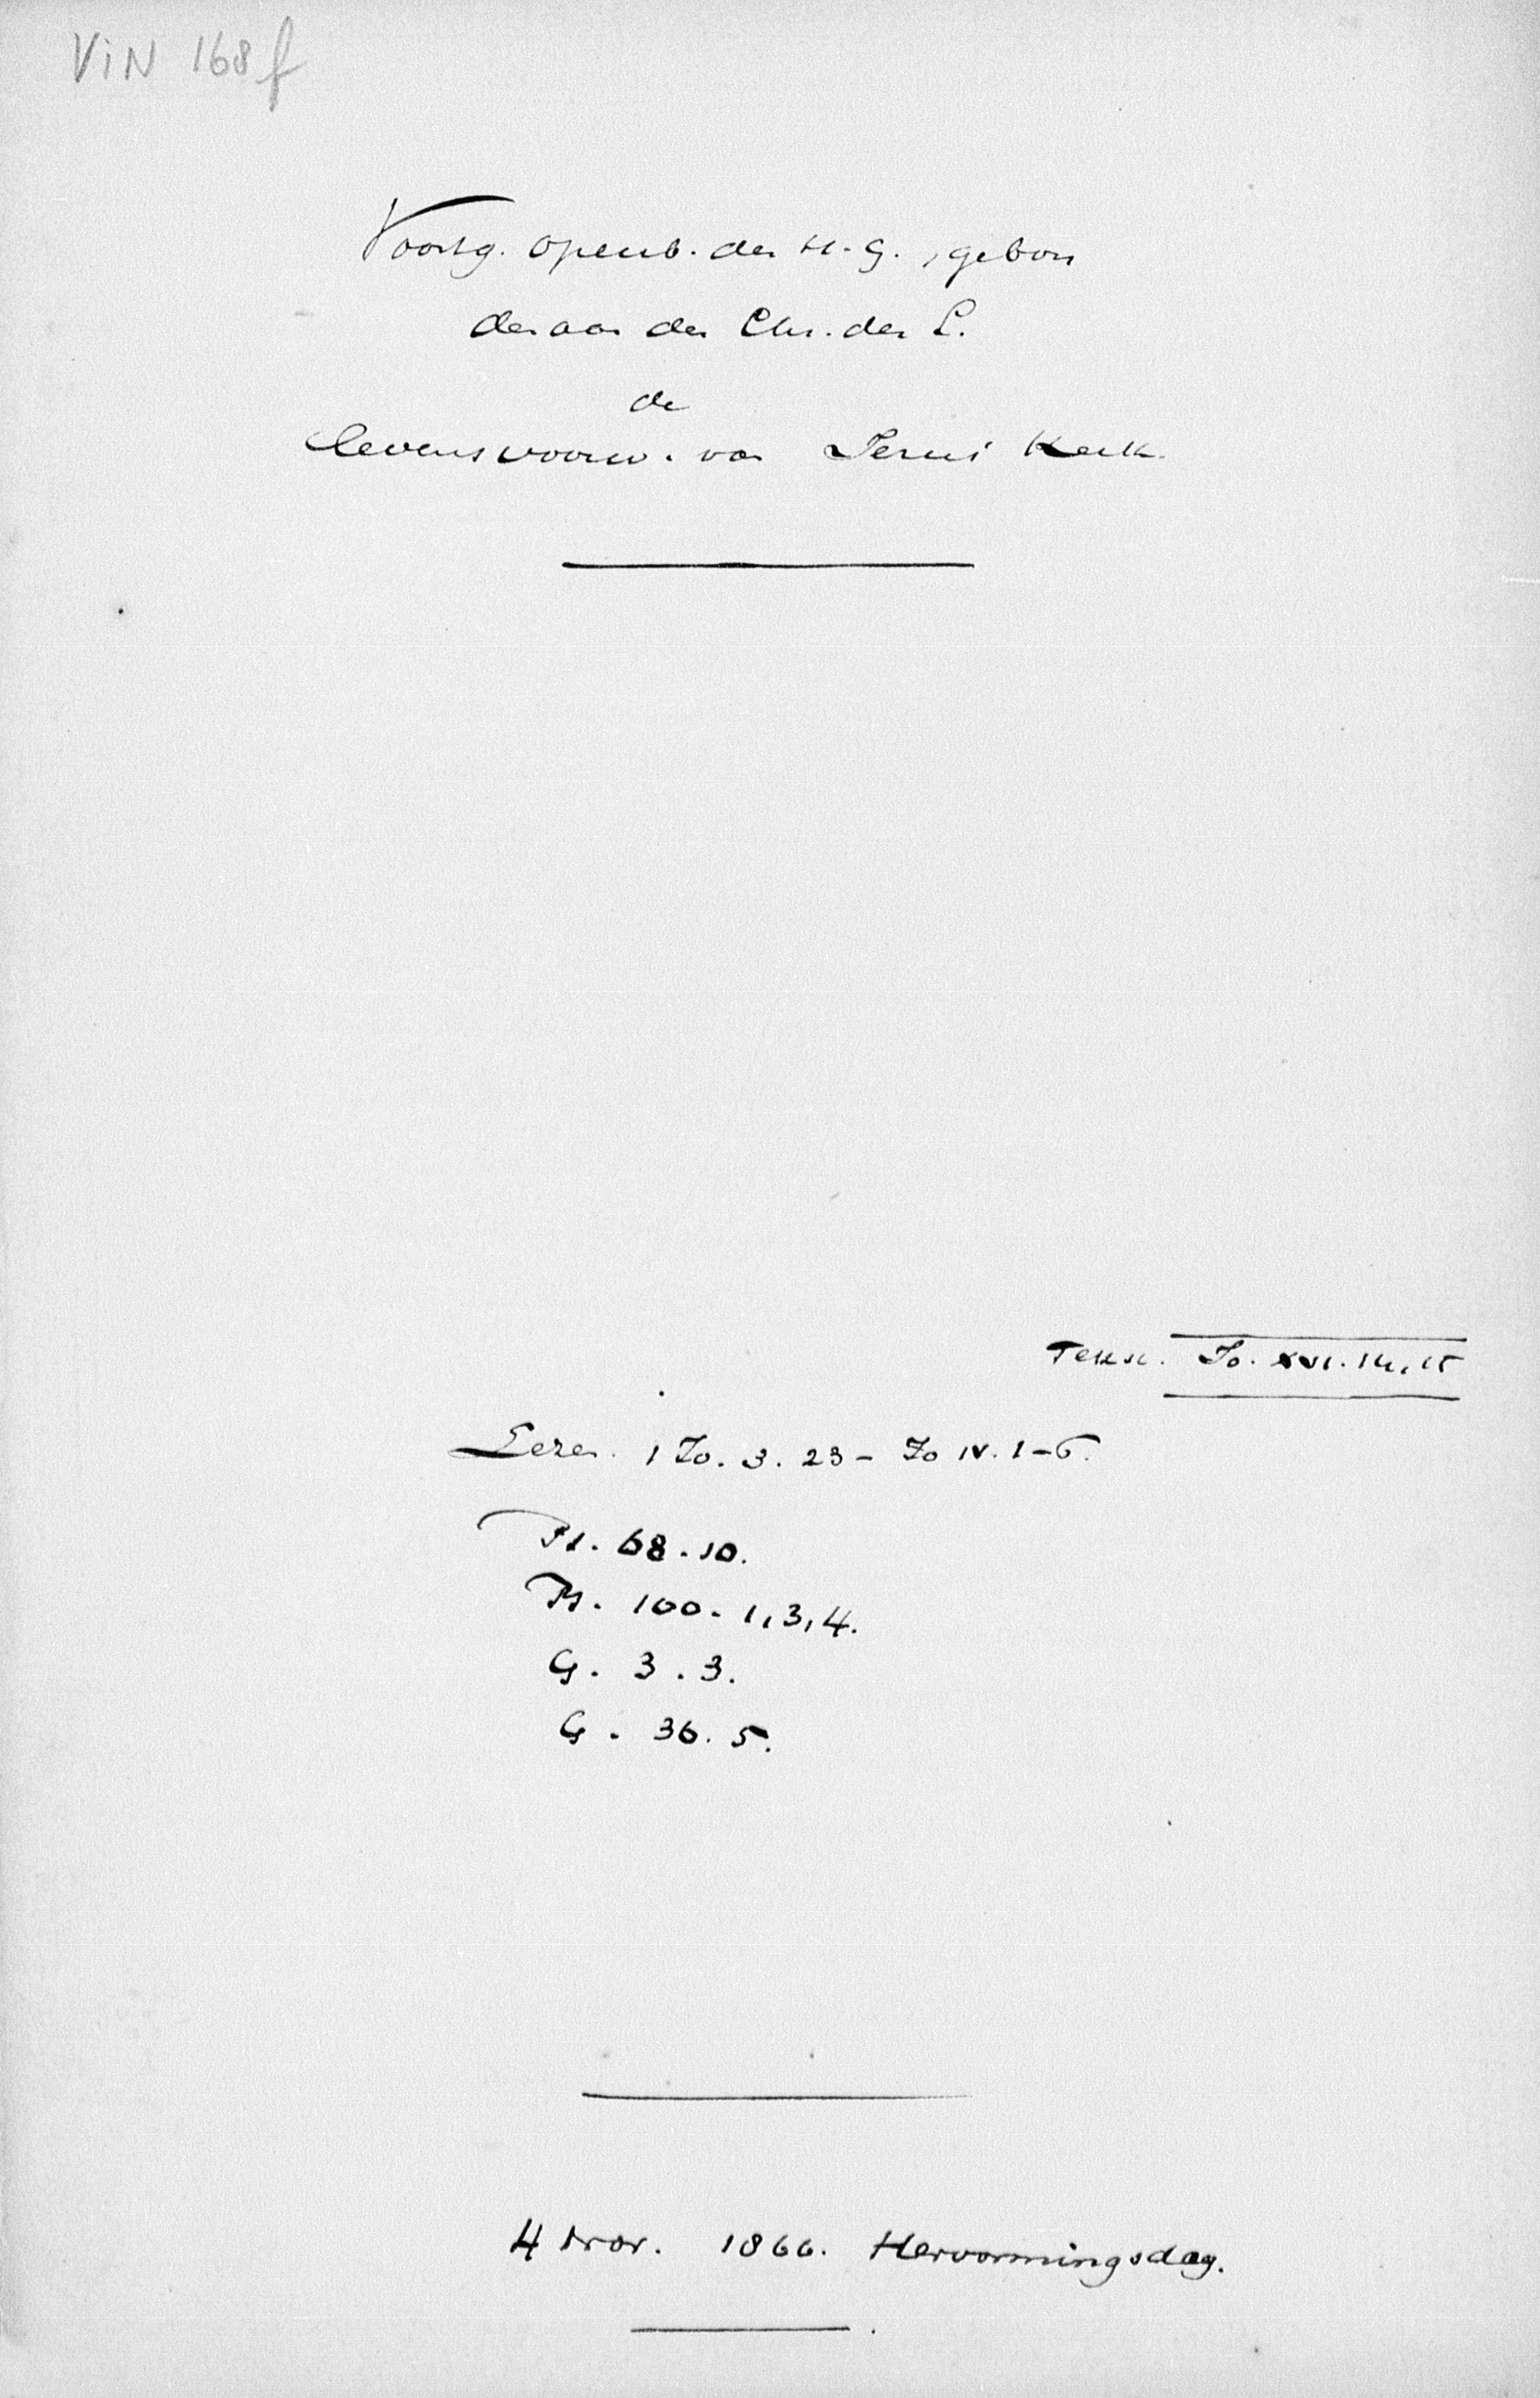 ViN 168f
Voortg. openb. der H. G., gebon
den aan den Chr. der S.
de
levensvoorw. van Jezus' Kerk.
Tekst. Jo. XVI. 14, 15
Lezen. 1 Jo. 3. 23 - Jo IV. 1-6.
Ps. 68. 10.
Ps. 100. 1, 3, 4.
G. 3. 3.
G. 36. 5.
4 Nov. 1866. Hervormingsdag.